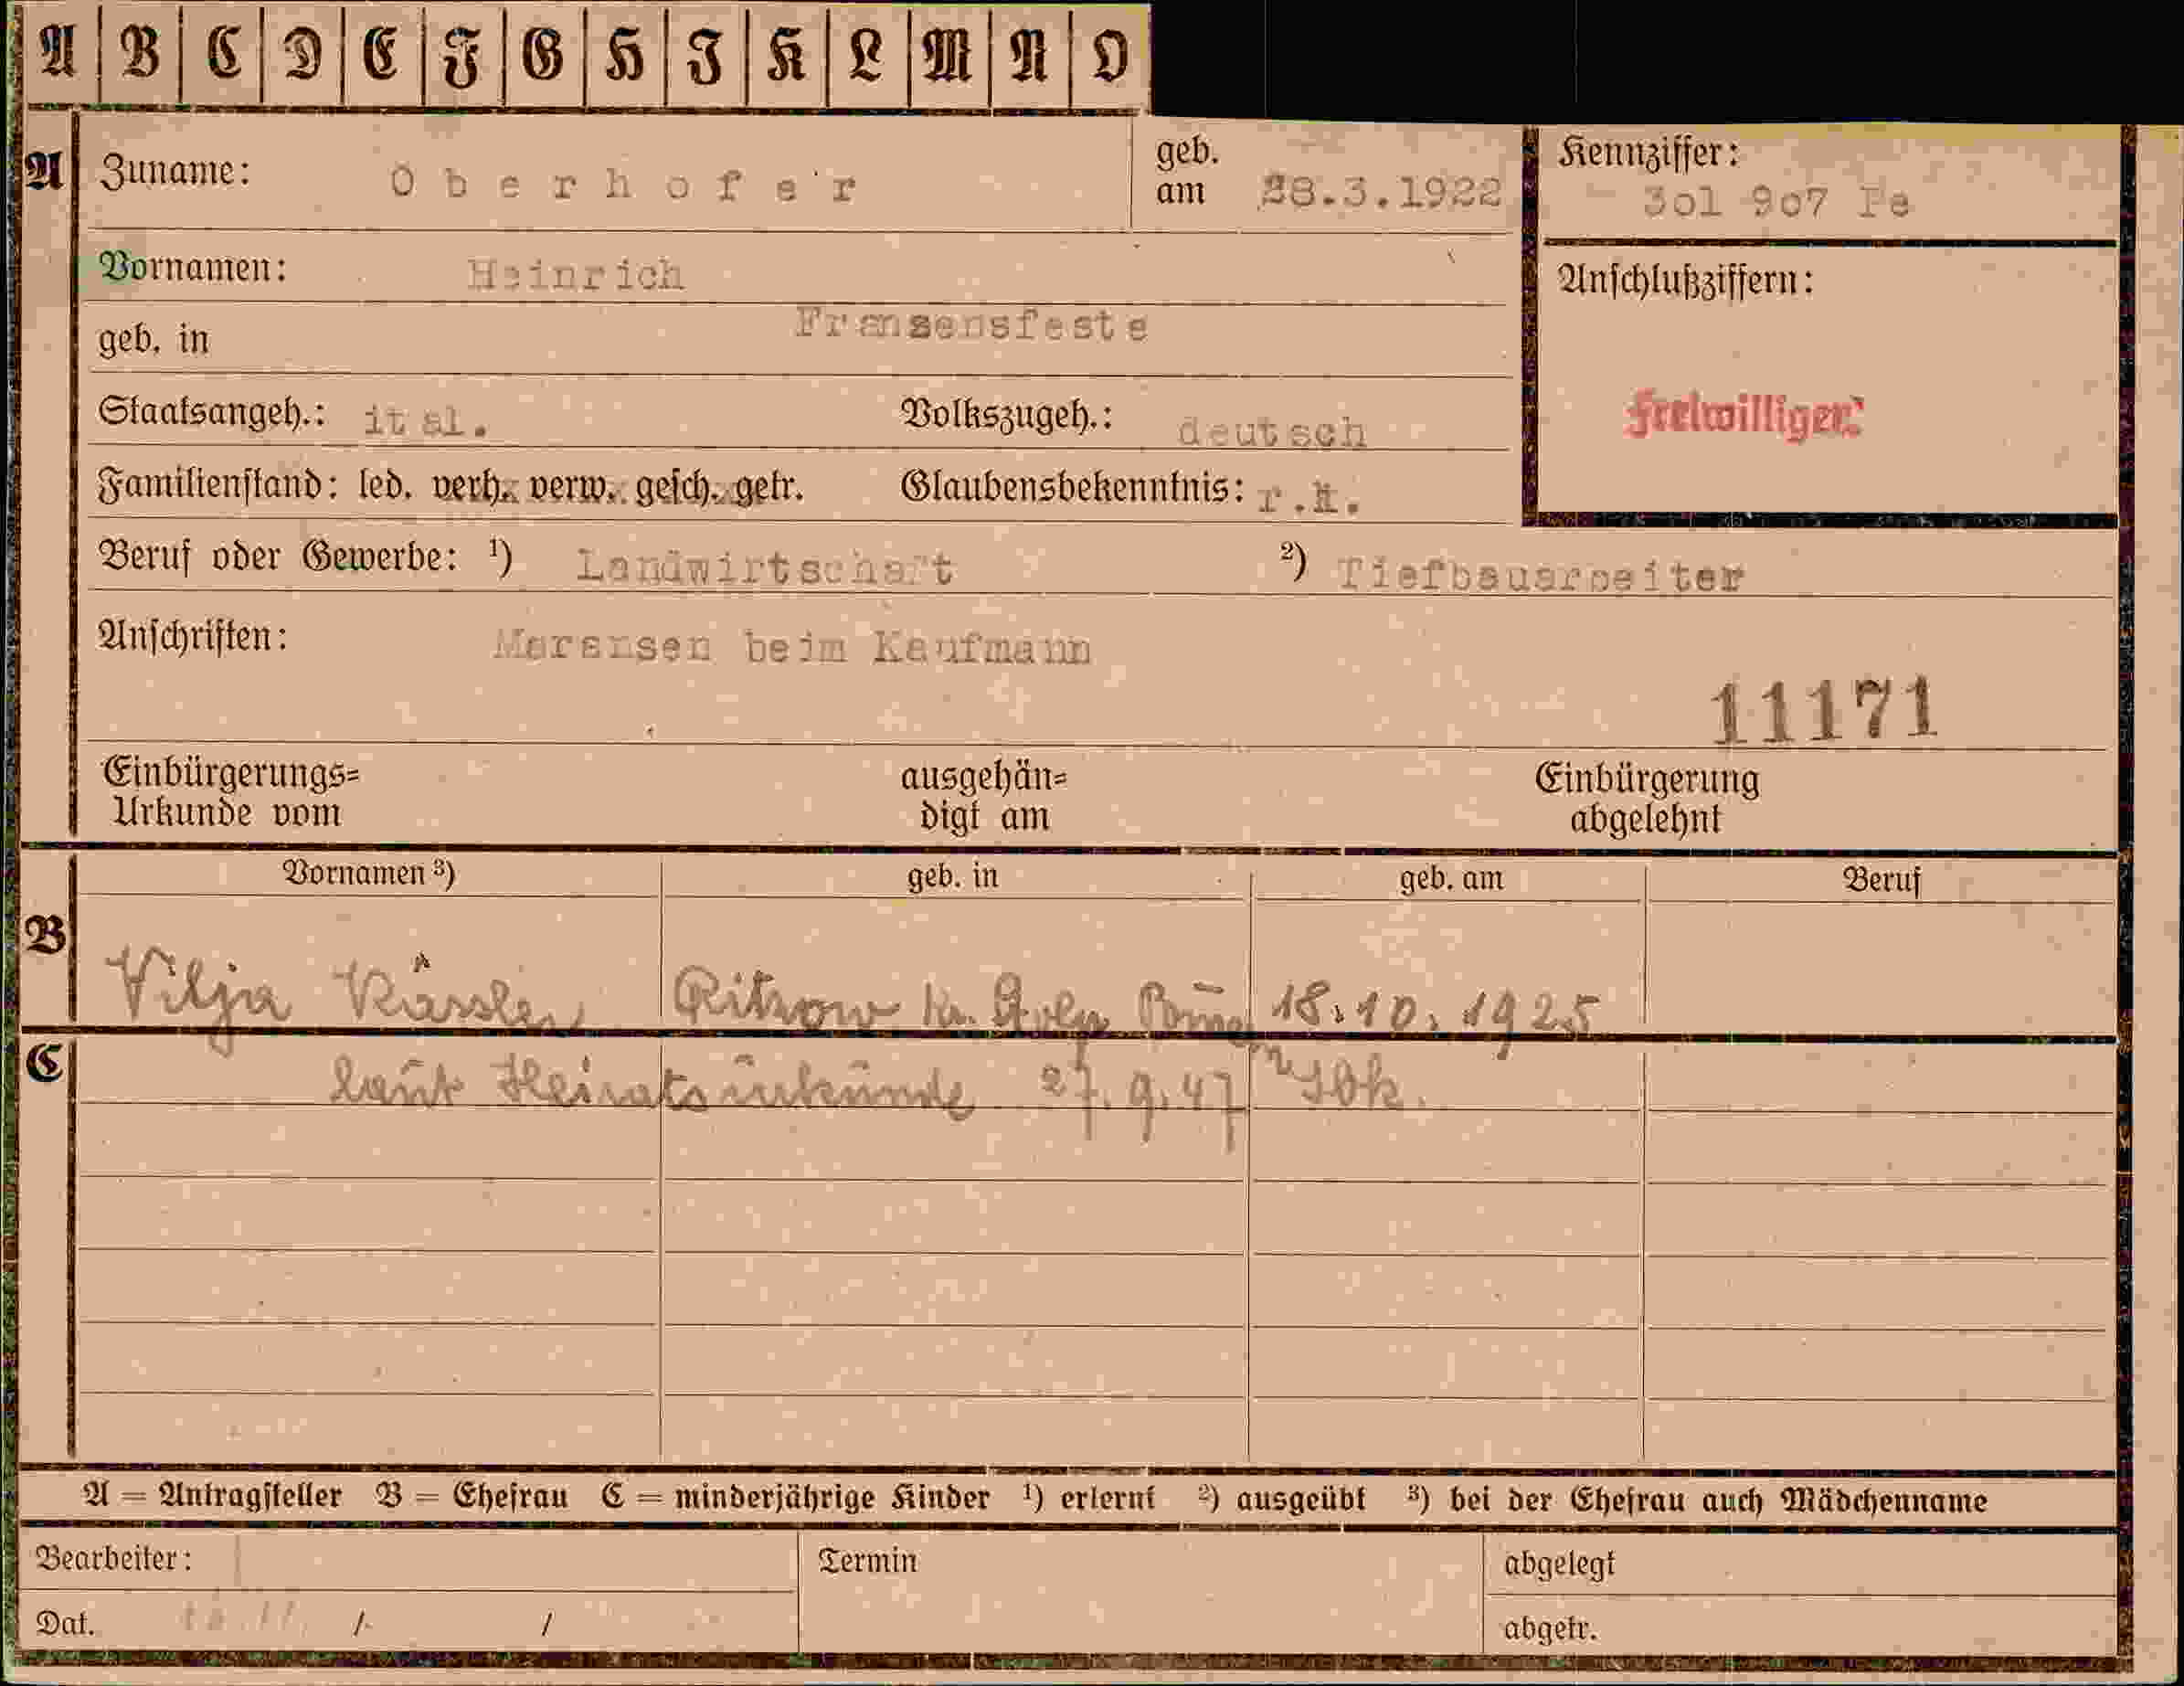 A B C D E F G H I K L M N O
A Zuname: Oberhofer geb. am 28.3.1922 Kennziffer: 3ol 9o7 Pe
Vornamen: Heinrich Anschlußziffern:
geb. in Fransensfeste
Staatsangeh.: ital. Volkszugeh.: deutsch Freiwilliger
Familienstand: led. verh. verw. gesch. getr. Glaubensbekenntnis: r.k.
Beruf oder Gewerbe: ¹) Landwirtschaft ²) Tiefbauarbeiter
Anschriften: Meransen beim Kaufmann
11171
Einbürgerungs=
Urkunde vom
ausgehän=
digt am
Einbürgerung
abgelehnt
Vornamen ³) geb. in geb. am Beruf
B Vilja Rässler Ritzow Kr. Stolp 18.10.1925
C laut Heiratsurkunde 27.9.47 Ibk.
A = Antragsteller B = Ehefrau C = minderjährige Kinder ¹) erlernt ²) ausgeübt ³) bei der Ehefrau auch Mädchenname
Bearbeiter: Termin abgelegt
Dat. / / abgetr.